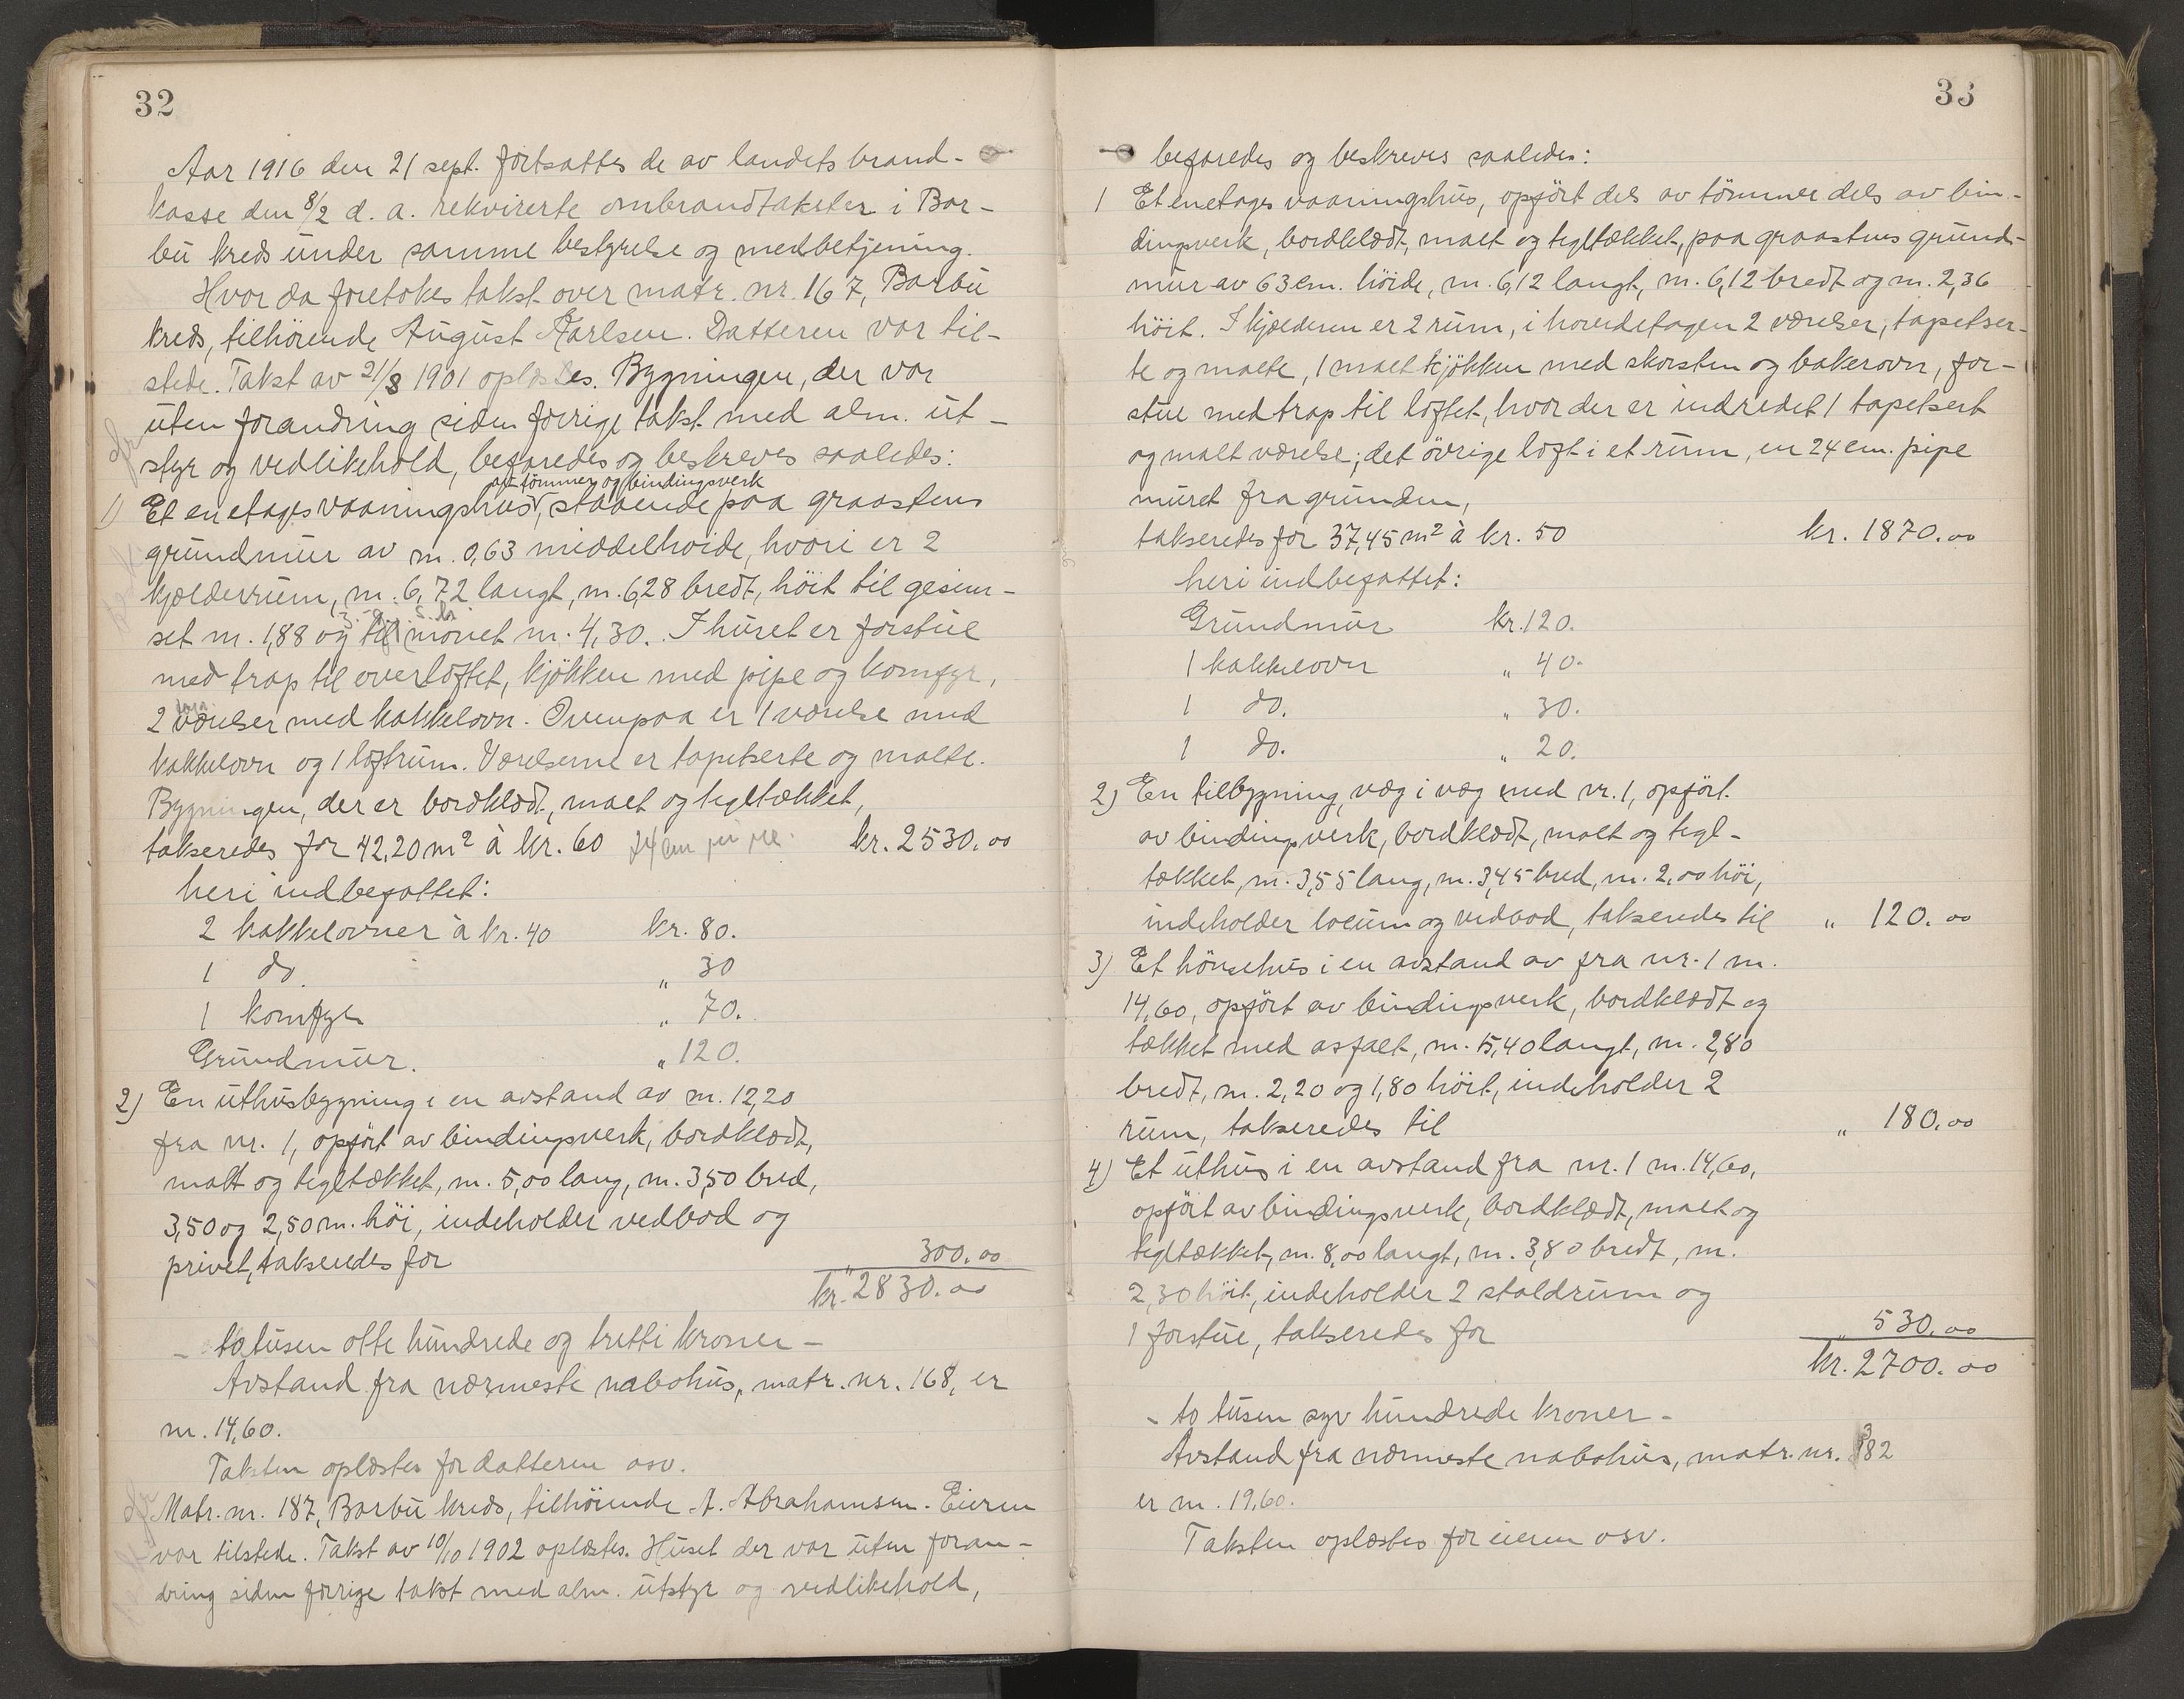 32
Aar 1916 den 21 sept. fortsattes de av landets brand-
kasse den 8/2 d. a. rekvirerte ombrandtakster i Bar-
bu kreds under samme bestyrelse og medbetjening.
Hvor da foretokes takst over matr. nr. 167, Barbu
kreds, tilhörende August Karlsen. Datteren var til-
stede. Takst av 21/8 1901 oplæstes. Bygningen, der var
uten forandring siden forrige takst med alm. ut-
styr og vedlikehold, befaredes og beskreves saaledes:
av tömmer og bindingsverk
1) Et enetages vaaningshus, staaende paa graastens
grundmur av m. 0,63 middelhoide, hvori er 2
kjælderrum, m. 6,72 langt, m. 6,28 bredt, höit til gesim-
set m. 1,88 og til mönet m. 4,30. I huset er forstue
med trap til overloftet, kjökken med pipe og komfyr,
2 værelser med kakkelovn. Ovenpaa er 1 værelse med
kakkelovn og 1 loftrum. Værelserne er tapetserte og malte.
Bygningen, der er bordklædt, malt og tegltækket,
takseredes for 42,20 m² à kr. 60 kr. 2530.00
heri indbefattet:
2 kakkelovner à kr. 40 kr. 80.
1 do. " 30
1 komfyr " 70.
Grundmur. " 120.
2) En uthusbygning i en avstand av m. 12,20
fra nr. 1, opfört av bindingsverk, bordklædt,
malt og tegltækket, m. 5,00 lang, m. 3,50 bred,
3,50 og 2,50 m. höi, indeholder vedbod og
privet, takseredes for " 300.00
kr. 2830.00
- totusen otte hundrede og tretti kroner -
Avstand fra nærmeste nabohus, matr. nr. 168, er
m. 14,60.
Taksten oplæstes for datteren osv.
Matr. nr. 187, Barbu kreds, tilhörende A. Abrahamsen. Eieren
var tilstede. Takst av 10/10 1902 oplæstes. Huset der var uten foran-
dring siden forrige takst med alm. utstyr og vedlikehold,
33
befaredes og beskreves saaledes:
1 Et enetages vaaningshus, opfört dels av tömmer dels av bin-
dingsverk, bordklædt, malt og tegltækket, paa graastens grund-
mur av 63 cm. höide, m. 6,12 langt, m. 6,12 bredt og m. 2,36
höit. I kjælderen er 2 rum, i hovedetagen 2 værelser, tapetser-
te og malte, 1 malt kjökken med skorsten og bakerovn, for-
stue med trap til loftet, hvor der er indredet 1 tapetsert
og malt værelse; det övrige loft i et rum, en 24 cm. pipe
muret fra grunden,
takseredes for 37,45 m² à kr. 50 kr. 1870.00
heri indbefattet:
Grundmur kr. 120.
1 kakkelovn " 40.
1 do. " 30.
1 do. " 20.
2) En tilbygning, væg i væg med nr. 1, opfört
av bindingsverk, bordklædt, malt og tegl-
tækket, m. 3,55 lang, m. 3,45 bred, m. 2,00 höi,
indeholder locum og vedbod, takseredes til " 120.00
3) Et hönsehus i en avstand av fra nr. 1 m.
14,60, opfört av bindingsverk, bordklædt og
tækket med asfalt, m. 15,40 langt, m. 2,80
bredt, m. 2,20 og 1,80 höit, indeholder 2
rum, takseredes til " 180.00
4) Et uthus i en avstand fra nr. 1 m. 14,60,
opfört av bindingsverk, bordklædt, malt og
tegltækket, m. 8,00 langt, m. 3,80 bredt, m.
2,30 höit, indeholder 2 staldrum og
1 forstue, takseredes for " 530.00
kr. 2700.00
- to tusen syv hundrede kroner -
Avstand fra nærmeste nabohus, matr. nr. 382
er m. 19,60.
Taksten oplæstes for eieren osv.